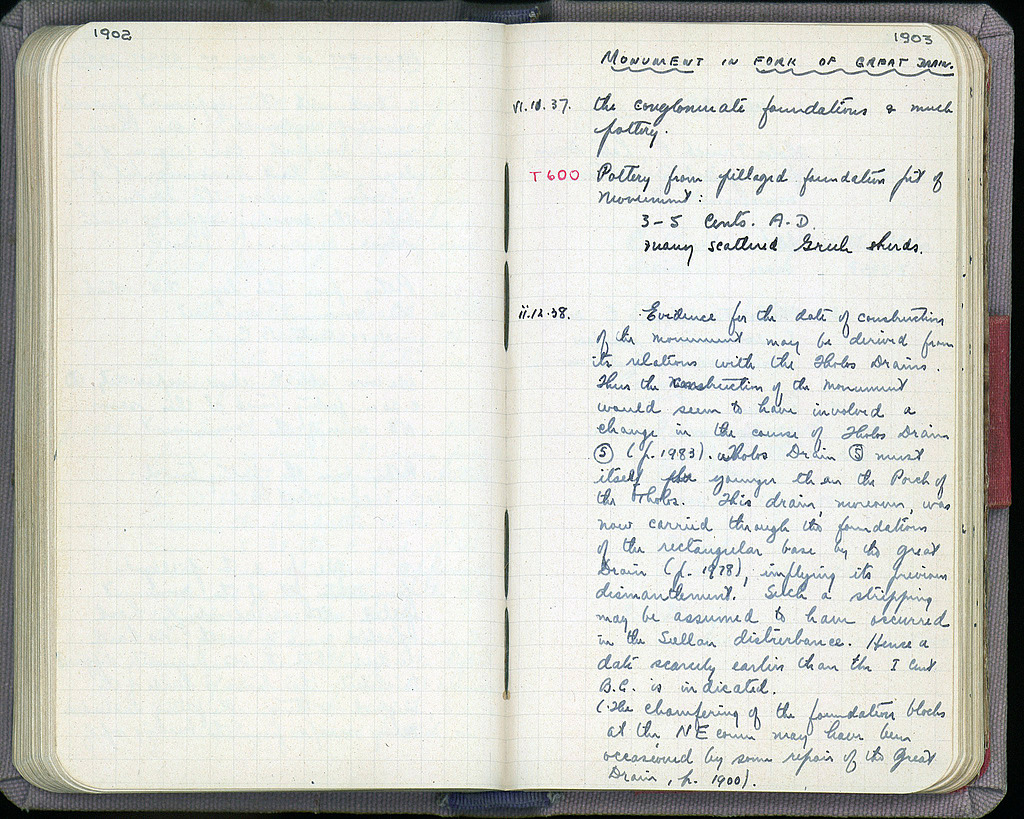 1902
1903
MONUMENT IN FORK OF GREAT DRAIN.
the conglomerate foundations & much
pottery.
T600 Pottery from pillaged foundation pit of
Monument:
3-5 Cents. A.D.
many scattered Greek sherds.
ii.12.38. Evidence for the date of construction
of the monument may be derived from
its relations with the Tholos Drains.
Thus the construction of the monument
would seem to have involved a
change in the course of Tholos Drain
⑤ (p. 1983). Tholos Drain ⑤ must
itself younger than the Porch of
the Tholos. This drain, moreover, was
now carried through the foundations
of the rectangular base by the Great
Drain (p. 1978), implying its previous
dismantlement. Such a stripping
may be assumed to have occurred
in the Sullan disturbance. Hence a
date scarcely earlier than the I Cent
B.C. is indicated.
(The chamfering of the foundation blocks
at the NE corner may have been
occasioned by some repair of the Great
Drain, p. 1900).